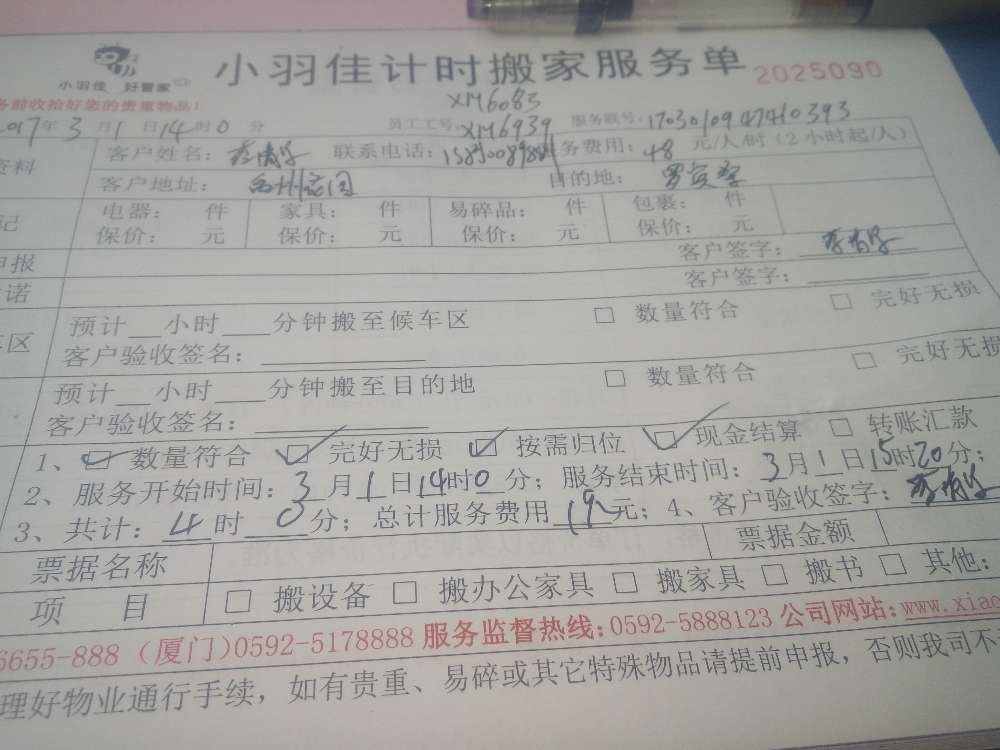 小羽佳计时搬家服务单 2025090
小羽佳 好管家
务前收拾好您的贵重物品!
XM6083
2017年3月1日14时0分 员工工号: XM6939 服务联号: 1703010947410393
资料 客户姓名: 联系电话: 务费用: 48 元/人/时(2小时起/人)
客户地址: 目的地:
记 电器: 件 家具: 件 易碎品: 件 包裹: 件
保价: 元 保价: 元 保价: 元 保价: 元
申报 客户签字:
诺 客户签字:
车区 预计 小时 分钟搬至候车区 □ 数量符合 □ 完好无损
客户验收签名:
预计 小时 分钟搬至目的地 □ 数量符合 □ 完好无损
客户验收签名:
1、☑ 数量符合 ☑ 完好无损 ☑ 按需归位 ☑ 现金结算 □ 转账汇款
2、服务开始时间: 3月1日14时0分; 服务结束时间: 3月1日15时20分;
3、共计: 4时0分; 总计服务费用192元; 4、客户验收签字:
票据名称 票据金额
项 目 □ 搬设备 □ 搬办公家具 □ 搬家具 □ 搬书 □ 其他:
6655-888 (厦门)0592-5178888 服务监督热线:0592-5888123 公司网站:www.xiao
理好物业通行手续,如有贵重、易碎或其它特殊物品请提前申报,否则我司不